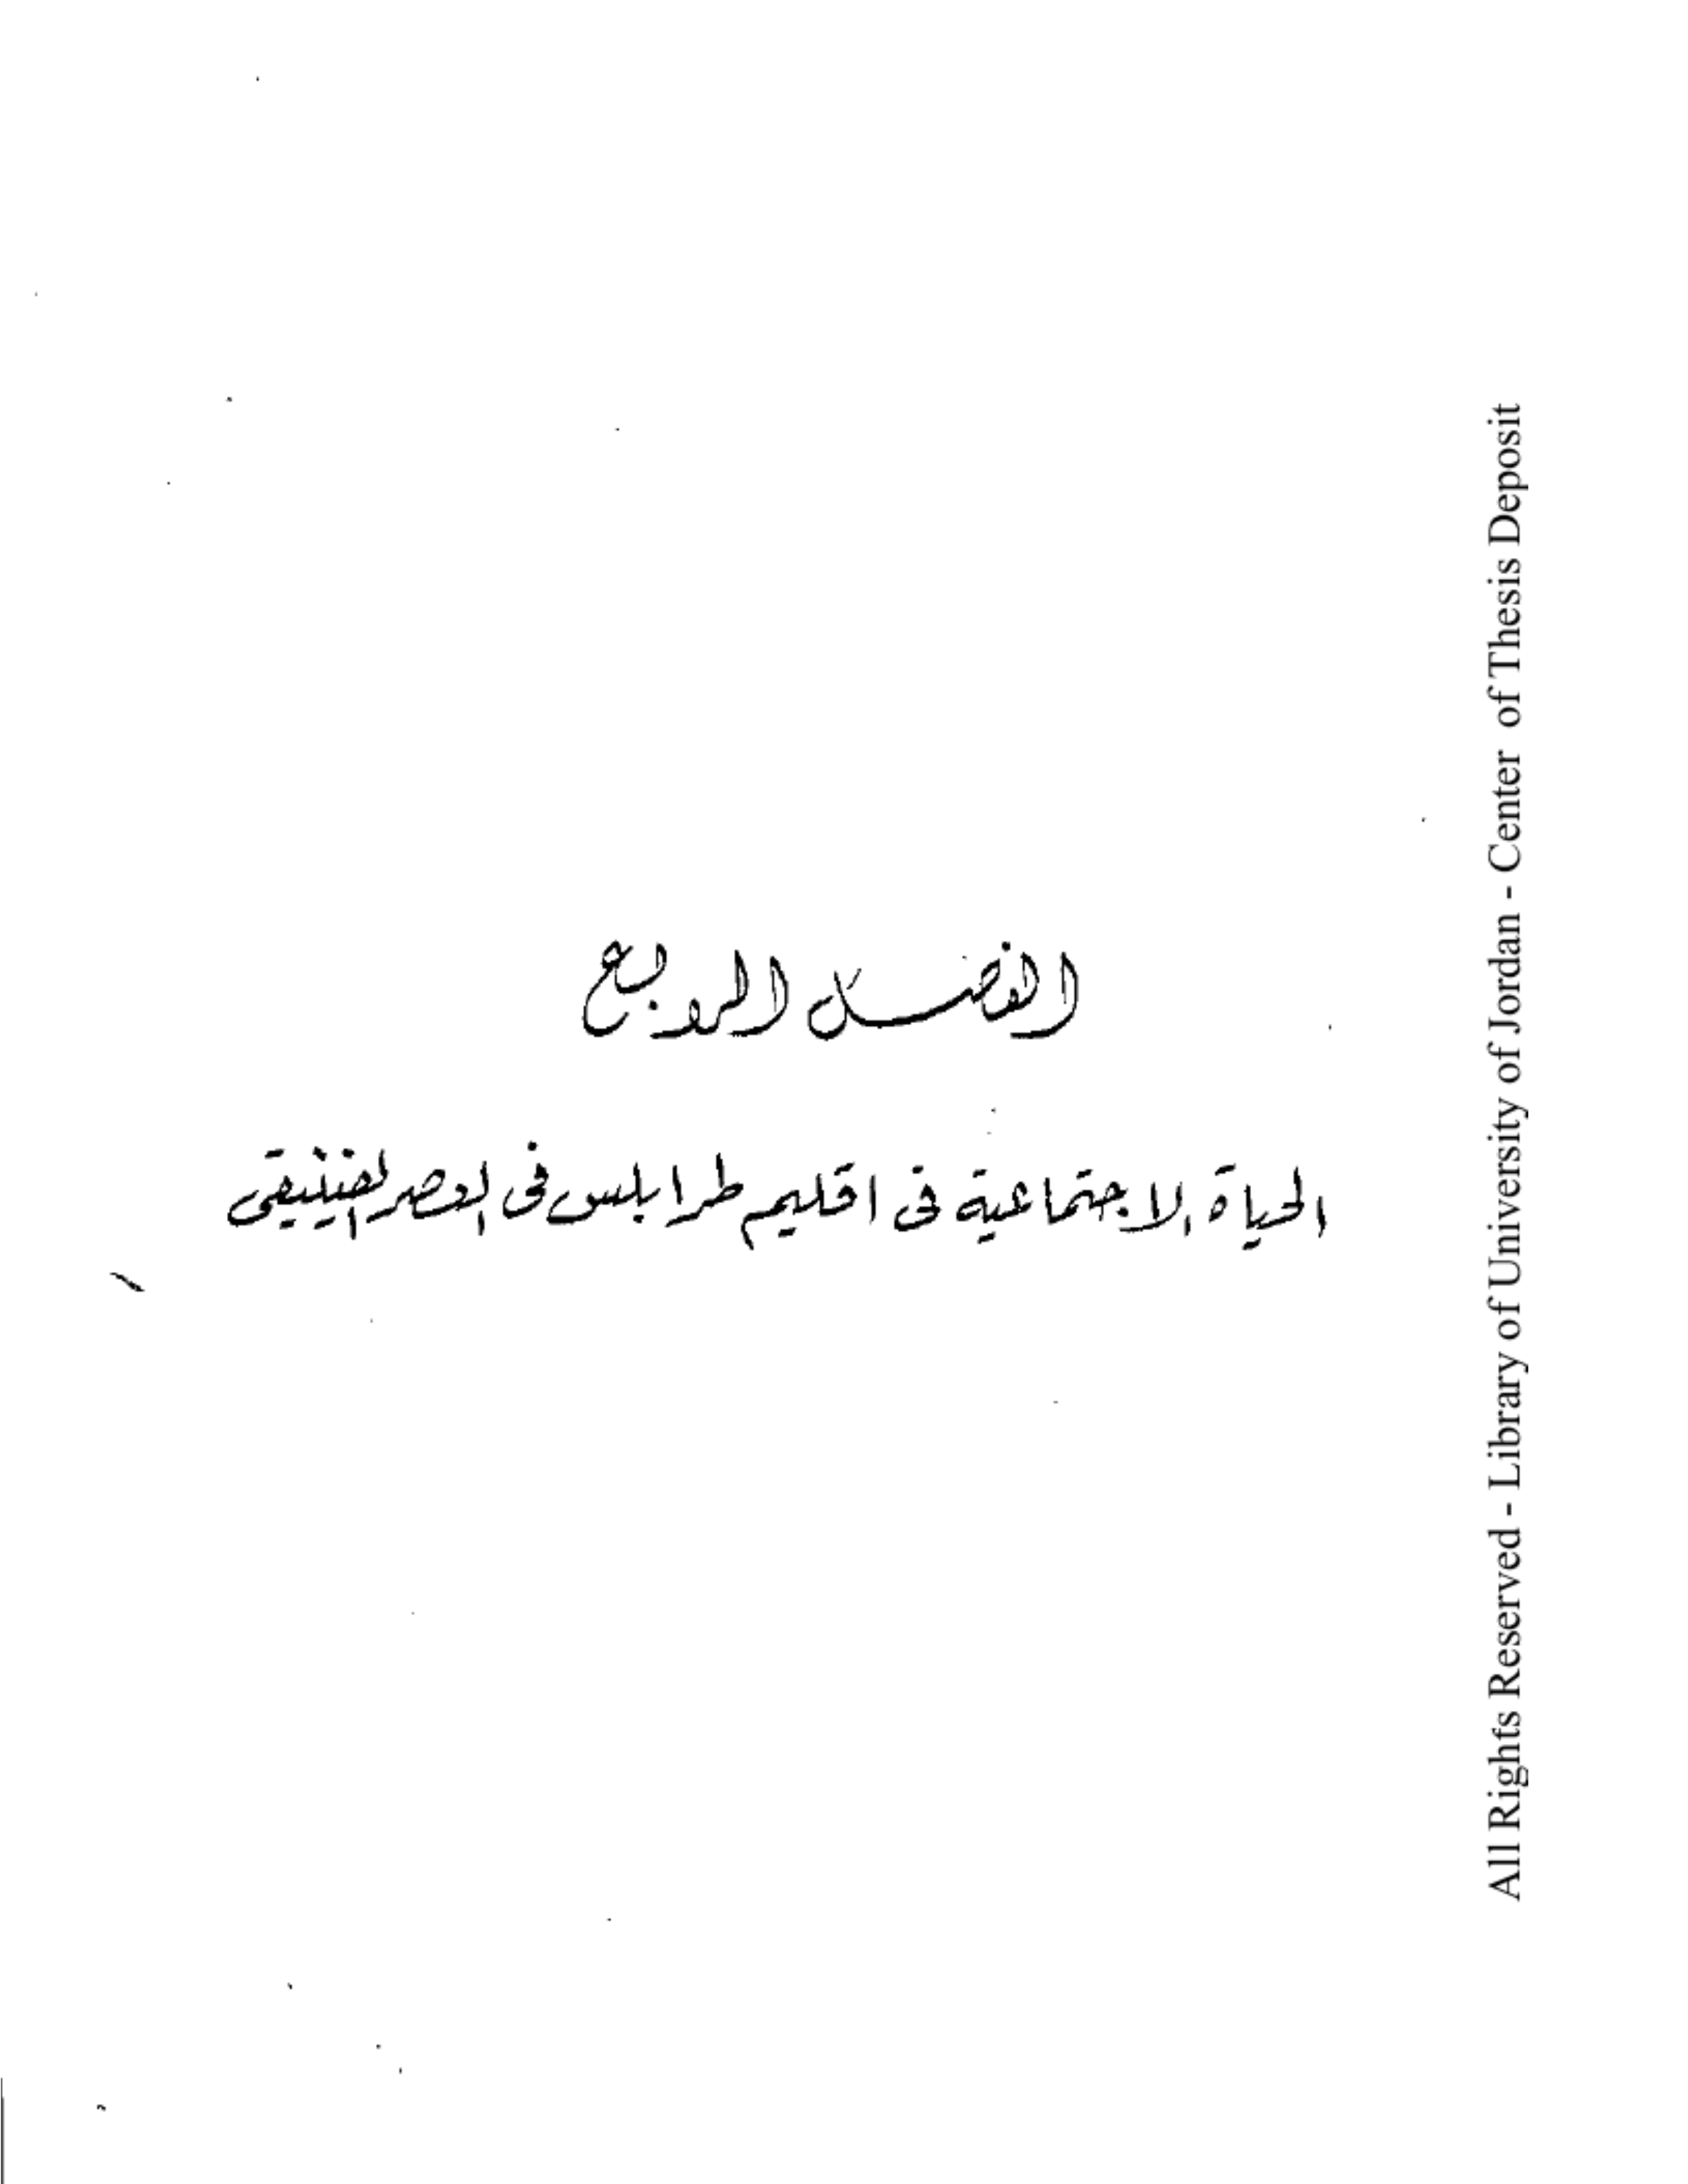 الفصل الرابع
الحياة الاجتماعية فى اقليم طرابلس فى العصر الفينيقى
All Rights Reserved - Library of University of Jordan - Center of Thesis Deposit